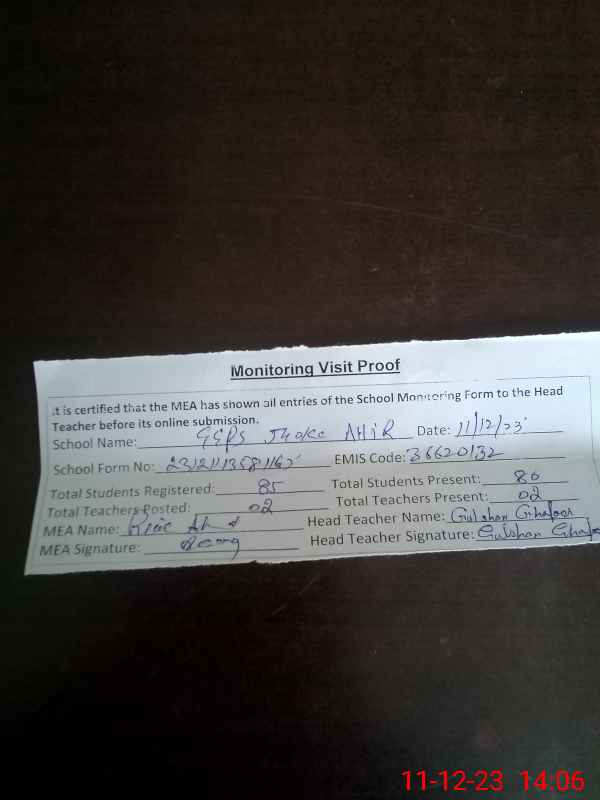 Monitoring Visit Proof
.t is certified that the MEA has shown all entries of the School Monitoring Form to the Head
Teacher before its online submission.
School Name: GGPS Jhoke AHIR Date: 11/12/23
School Form No: EMIS Code: 36620132
Total Students Registered: 85 Total Students Present: 80
Total Teachers Posted: 02 Total Teachers Present: 02
MEA Name: Head Teacher Name: Gulshan Ghafoor
MEA Signature: Head Teacher Signature: Gulshan
11-12-23 14:06